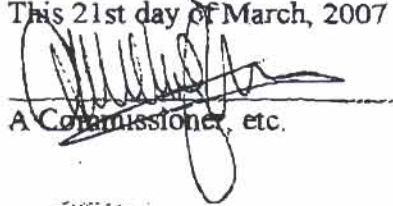 This 21st day of March, 2007
A Commissioner, etc.